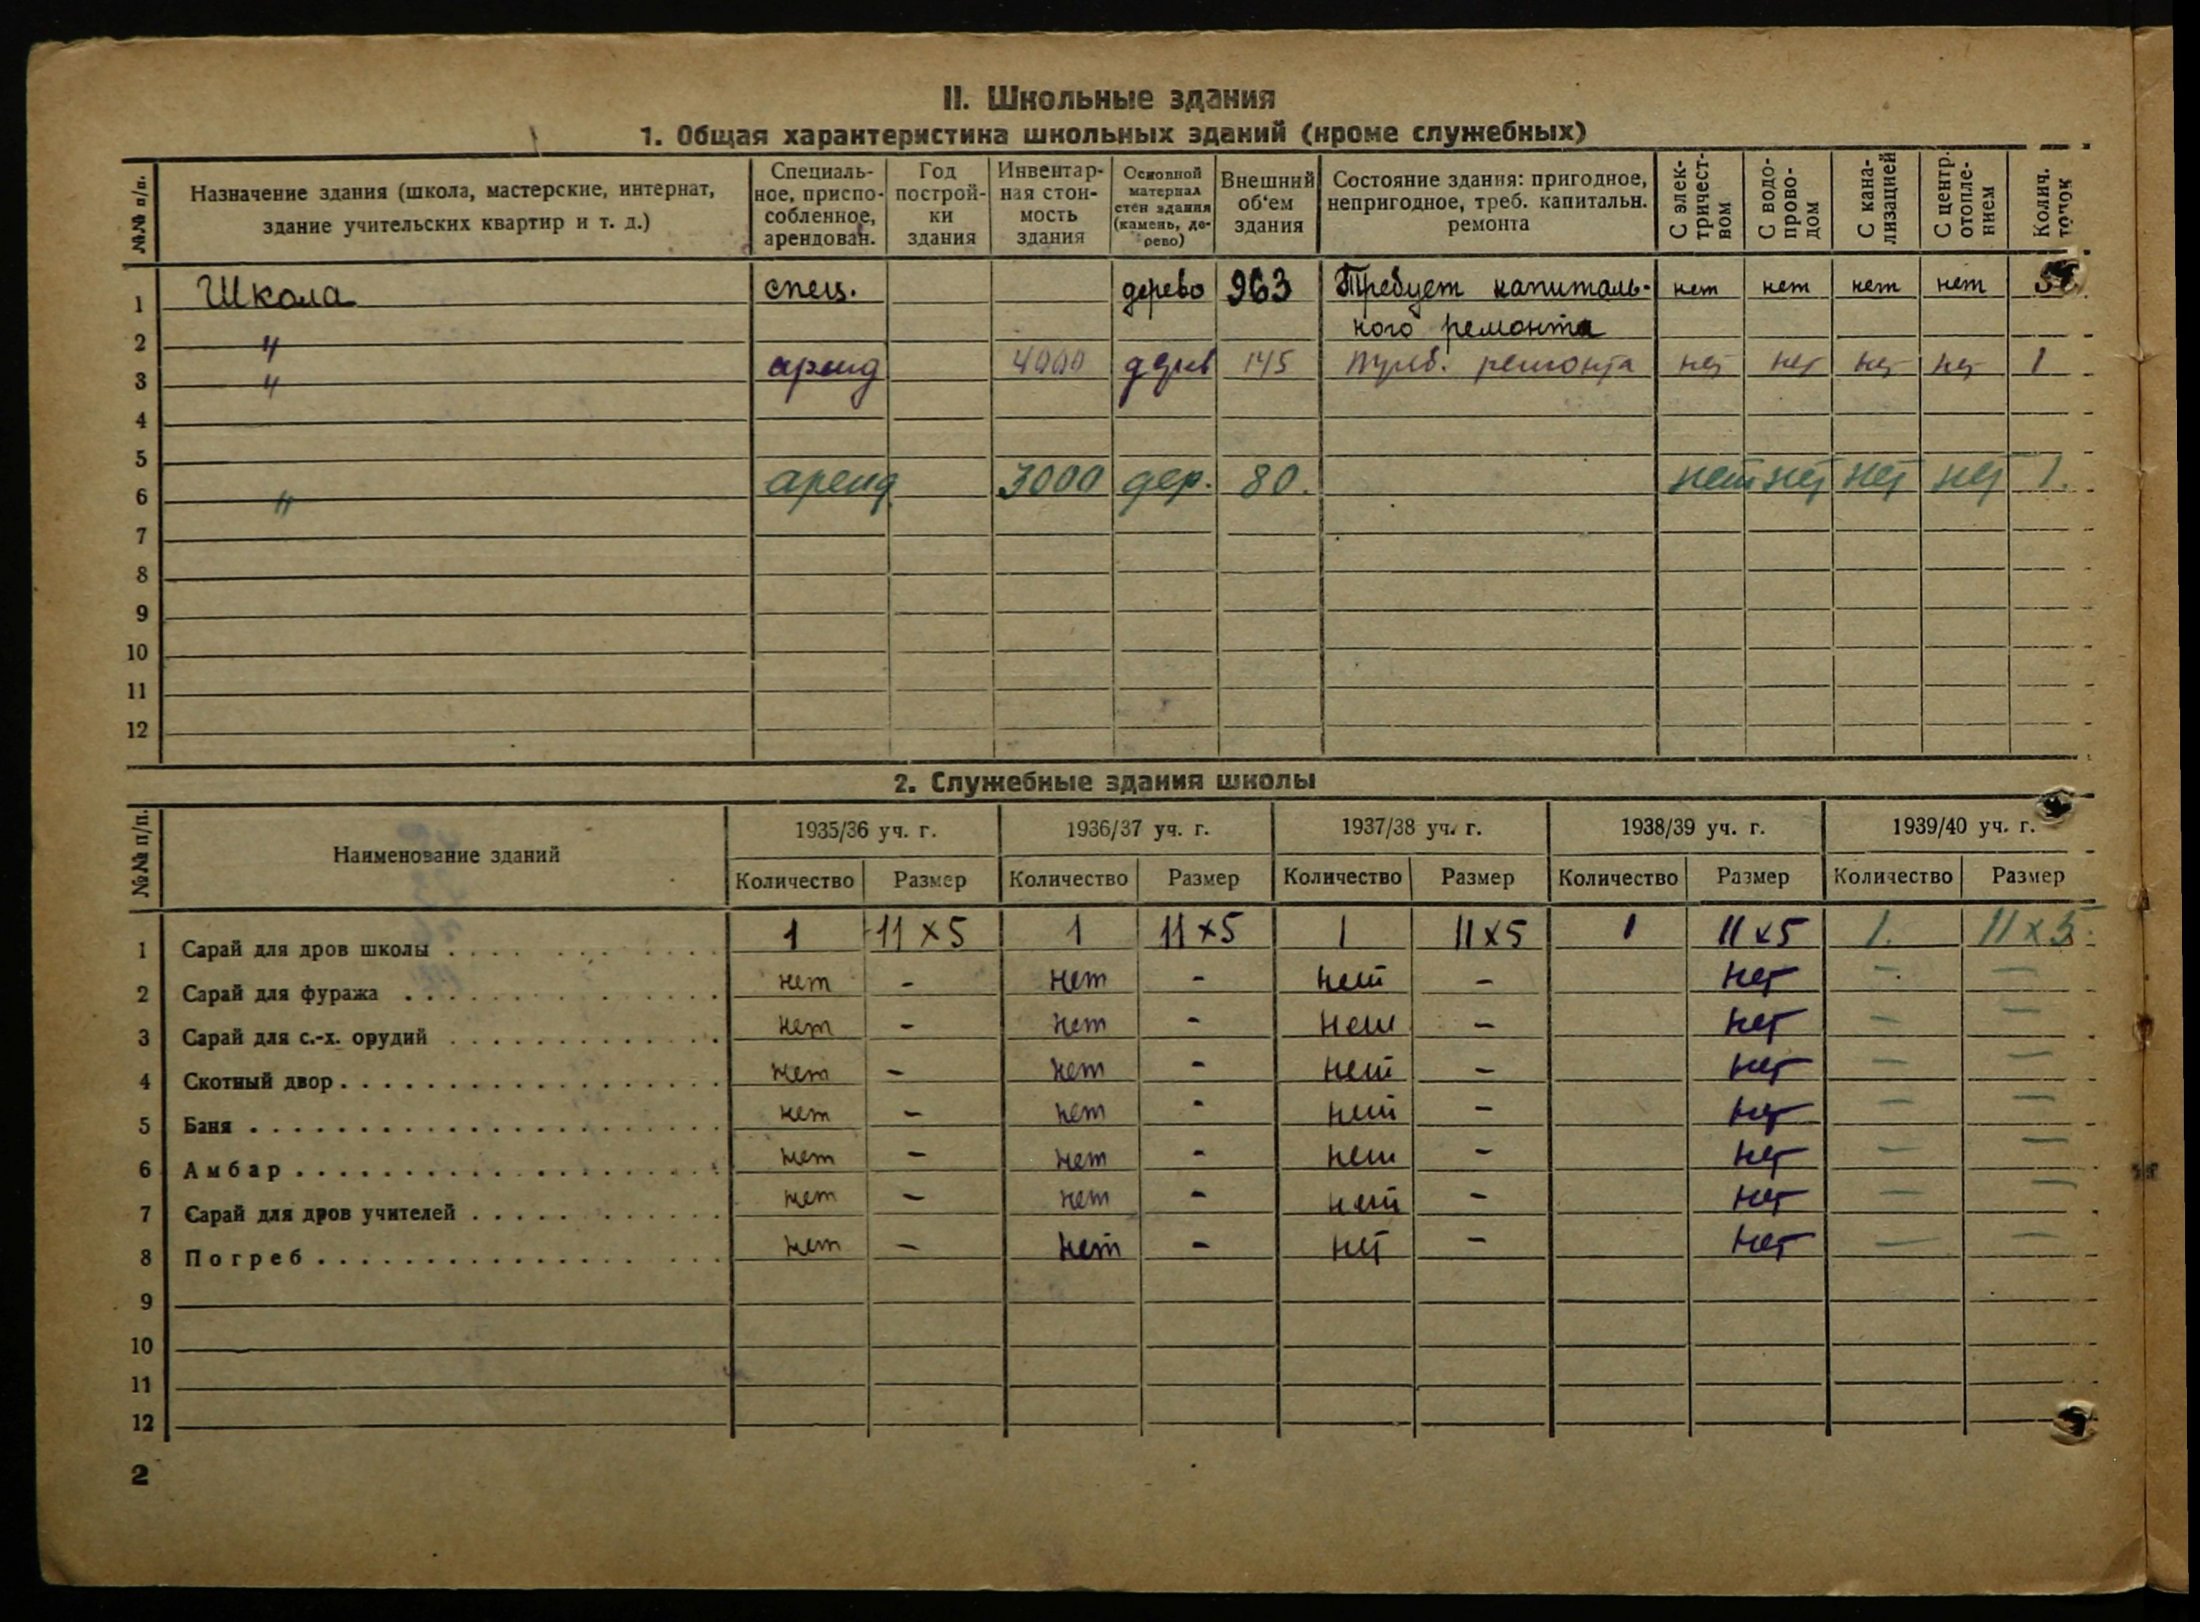 II. Школьные здания
1. Общая характеристика школьных зданий (кроме служебных)
№№ п/п. Назначение здания (школа, мастерские, интернат, здание учительских квартир и т. д.) Специальное, приспособленное, арендован. Год постройки здания Инвентарная стоимость здания Основной материал стен здания (камень, дерево) Внешний об'ем здания Состояние здания: пригодное, непригодное, треб. капитальн. ремонта С электричеством С водопроводом С канализацией С центр. отоплением Колич. топок
1 Школа спец. дерево 963 Требует капиталь- нет нет нет нет
2 " ного ремонта
3 " аренд 4000 дерев 145 треб. ремонта нет нет нет нет 1
4
5
6 " аренд 3000 дер. 80. нет нет нет нет 1.
7
8
9
10
11
12
2. Служебные здания школы
№№ п/п. Наименование зданий 1935/36 уч. г. 1936/37 уч. г. 1937/38 уч. г. 1938/39 уч. г. 1939/40 уч. г.
Количество Размер Количество Размер Количество Размер Количество Размер Количество Размер
1 Сарай для дров школы 1 11 x 5 1 11 x 5 1 11 x 5 1 11 x 5 1. 11 x 5.
2 Сарай для фуража нет - нет - нет - нет - -
3 Сарай для с.-х. орудий нет - нет - нет - нет - -
4 Скотный двор нет - нет - нет - нет - -
5 Баня нет - нет - нет - нет - -
6 Амбар нет - нет - нет - нет - -
7 Сарай для дров учителей нет - нет - нет - нет - -
8 Погреб нет - нет - нет - нет - -
9
10
11
12
2